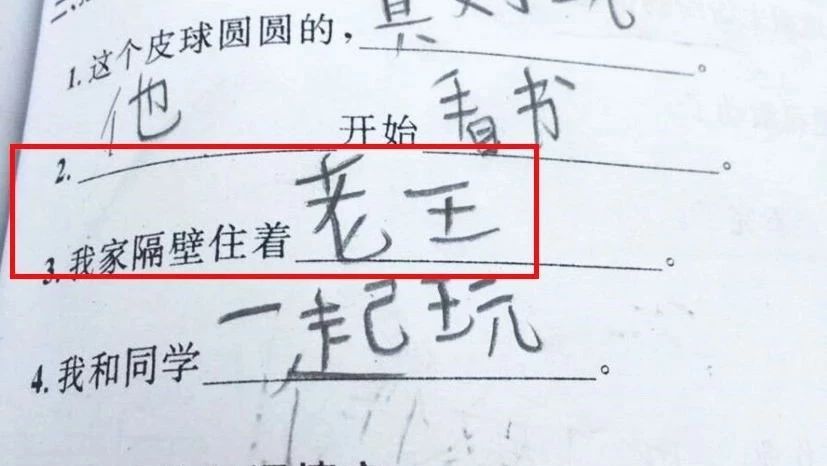 1.这个皮球圆圆的，真好玩。
2.他开始看书。
3.我家隔壁住着老王。
4.我和同学一起玩。